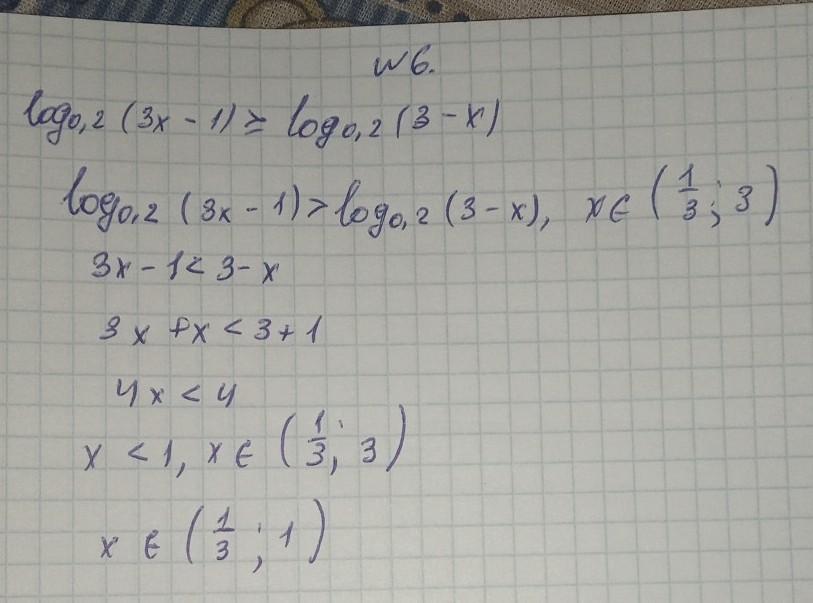 №6.
log₀,₂ (3x - 1) ≥ log₀,₂ (3 - x)
log₀,₂ (3x - 1) > log₀,₂ (3 - x), x ∈ (1/3; 3)
3x - 1 < 3 - x
3x + x < 3 + 1
4x < 4
x < 1, x ∈ (1/3; 3)
x ∈ (1/3; 1)